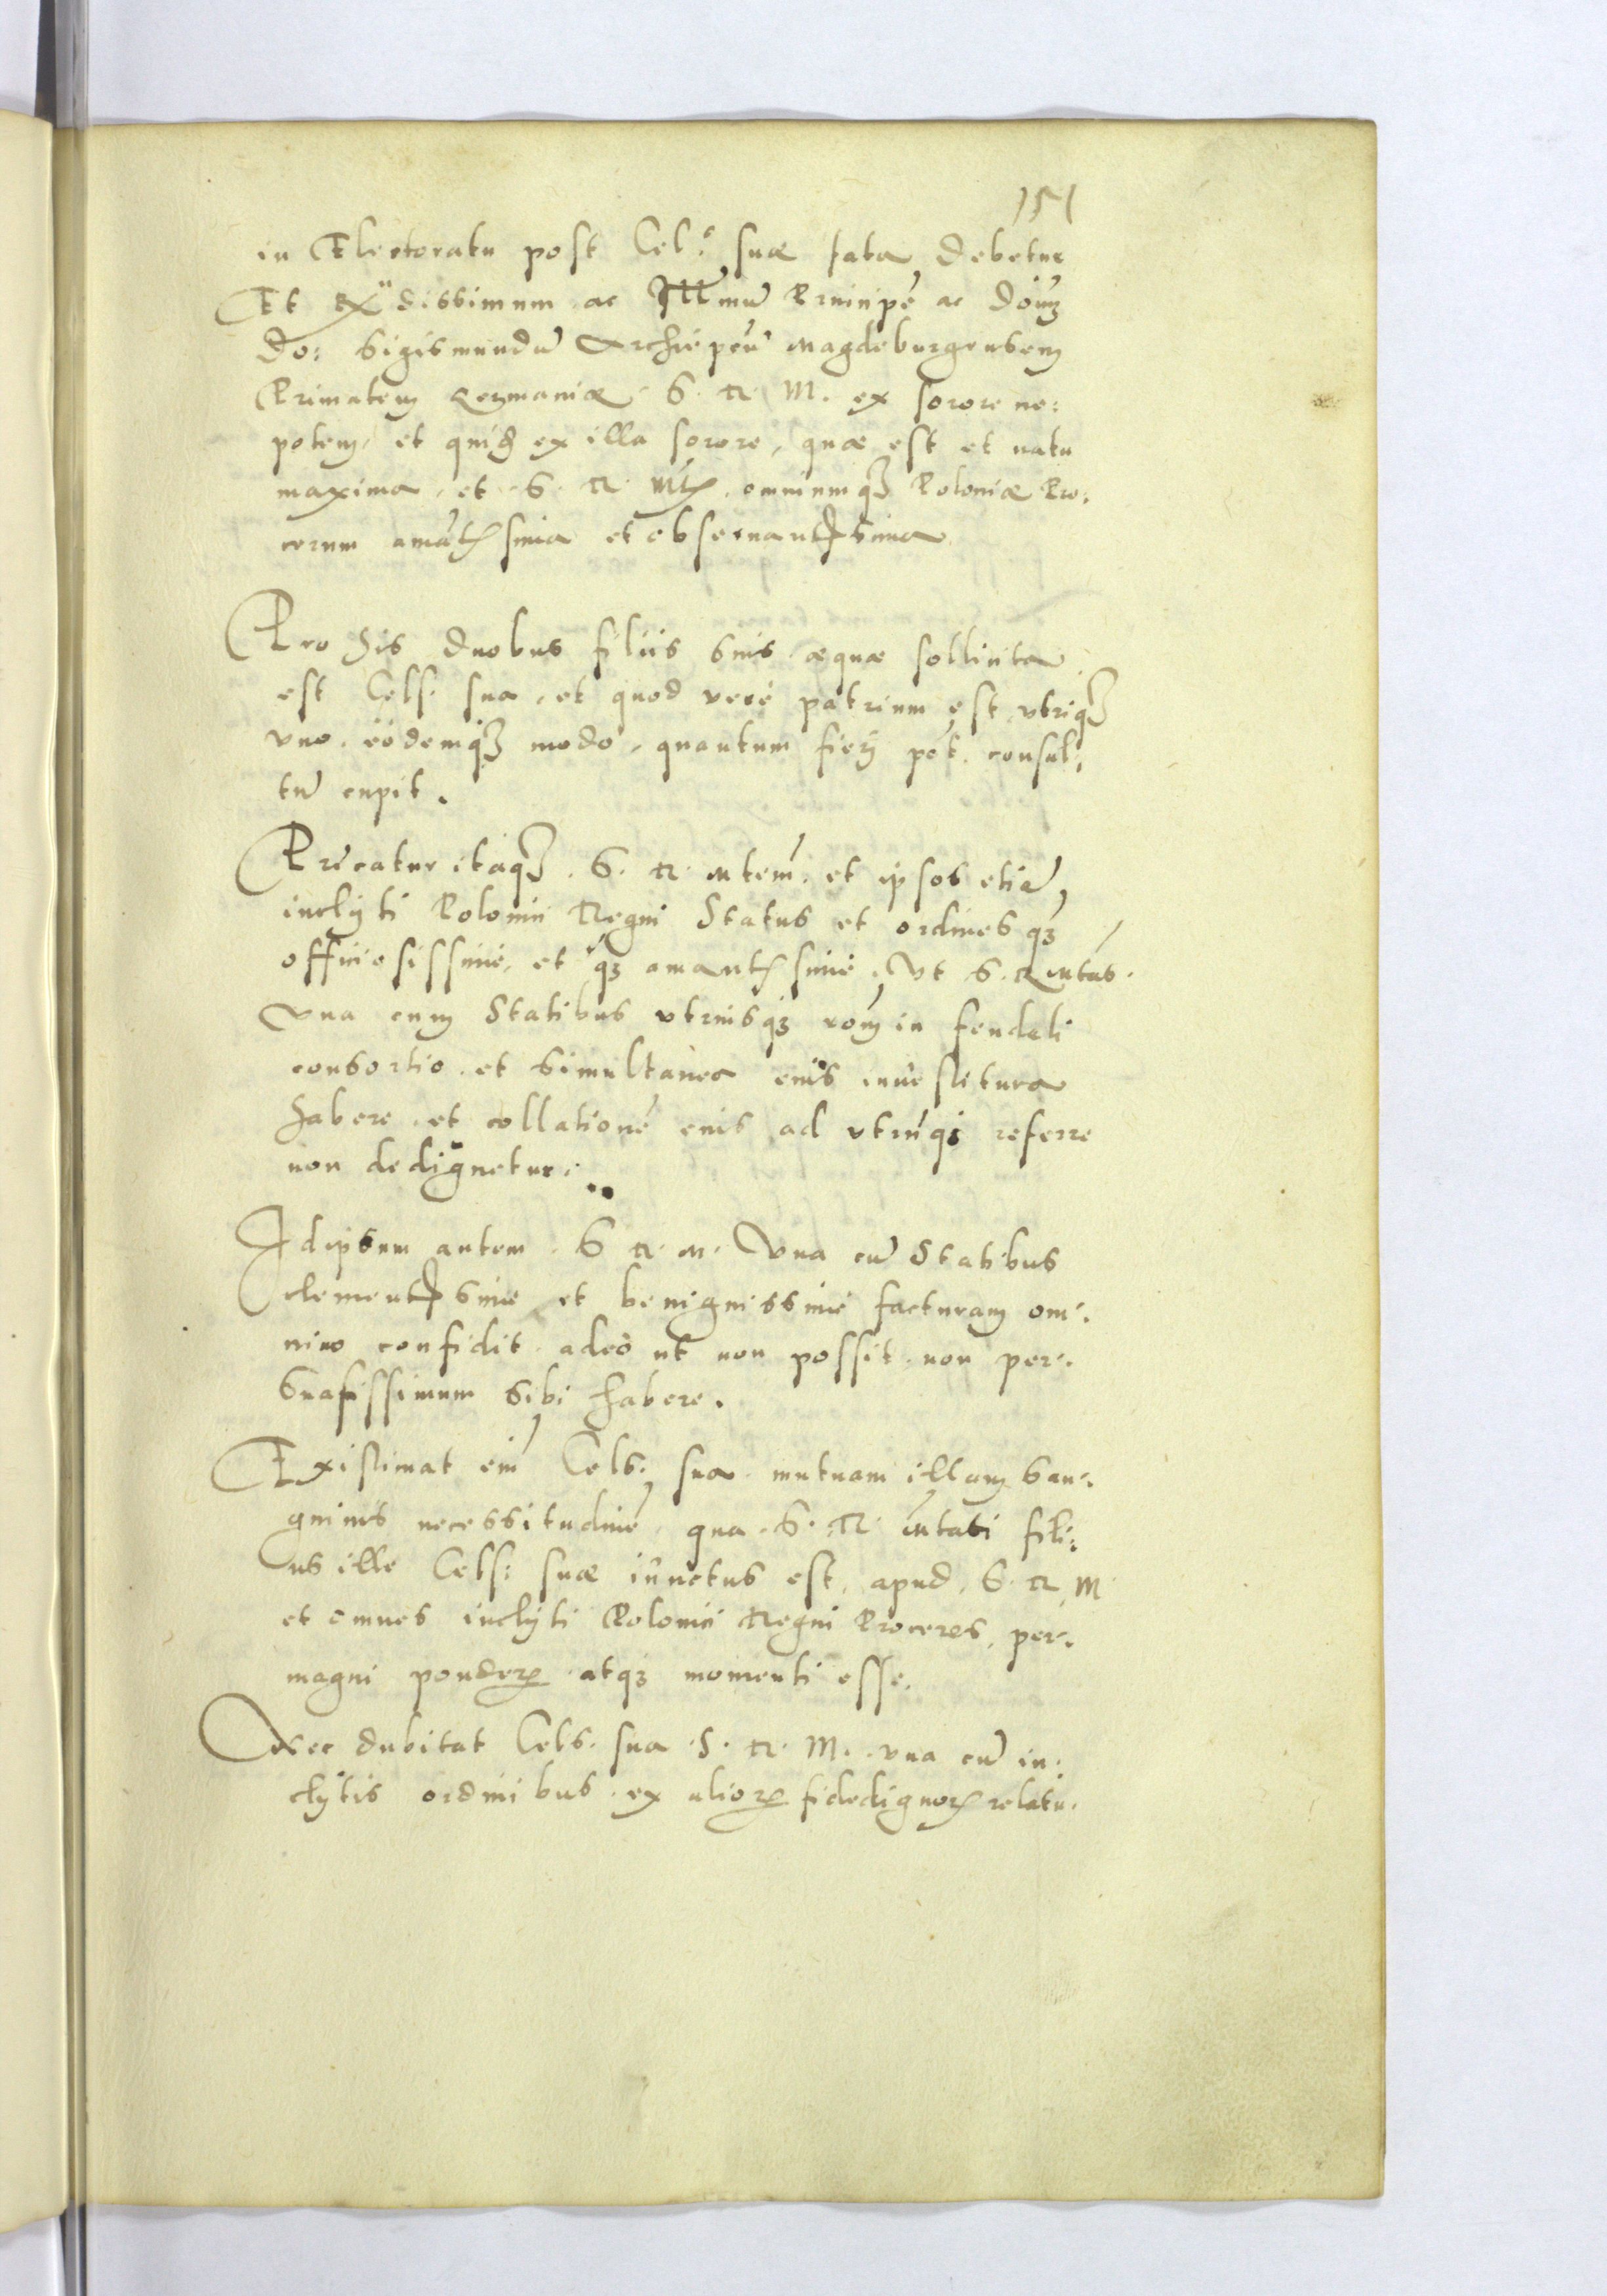 151
in Electoratu post Cel: suæ fata debetur
Et Rdissimum ac Illmū Principē ac Dōmȝ
Do: Sigismundū Archiepcū Magdeburgensem
Primatem Germaniæ S. R. M. ex sorore ne:
potem, et quidem ex illa sorore, quæ est et natu
maxima, et S. R. Mtis omniumqȝ Poloniæ Pro:
cerum amātissima et obseruantissima
Pro his duobus filiis suis æquæ sollicita
est Cels. sua, et quod verè patrium est, vtriqȝ
vno, eòdemqȝ modo, quantum fieri pōt, consul:
tū cupit.
Precatur itaqȝ S. R. Mtem, et ipsos etiā
inclyti Polonici Regni Status et ordines qȝ
officiosissimè, et qȝ amantissimè, Vt S. R. Mtas.
Vna cum Statibus vtriusqȝ rōm in feudali
consortio, et simultanea eius inuestitura
habere, et collationē eius ad vtrūqȝ referre
non dedignetur:
Idipsum autem S. R. M. Vna cū Statibus
clementissimè et benignissimè facturam om:
nino confidit, adeò ut non possit, non per:
suasissimum sibi habere.
Existimat eim Cels. sua mutuam illam san:
guinis necessitudinē, qua S. R. Mtati fili:
us ille Cels: suæ iunctus est, apud S. R. M
et omnes inclyti Polonici Regni Proceres, per:
magni ponderis atqȝ momenti esse.
Nec dubitat Cels. sua S. R. M. vna cū in:
clytis ordinibus, ex aliorum fidedignorum relatu.